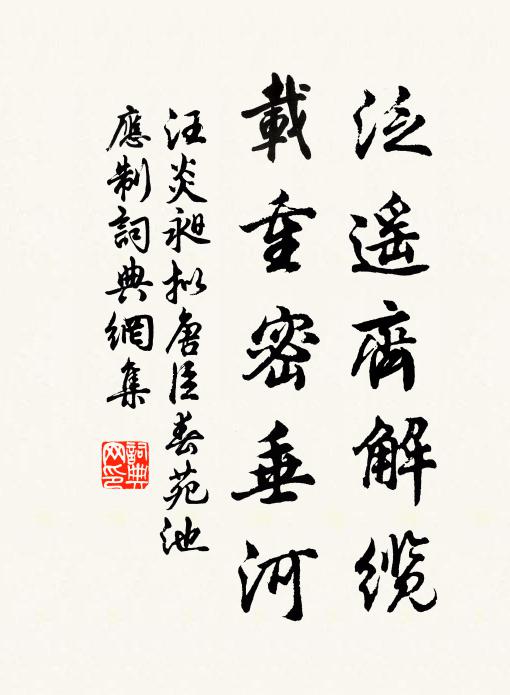 泛遥齊解缆
載重密垂河
汪炎昶拟唐臣春苑池
應制詞典網集
詞典網印